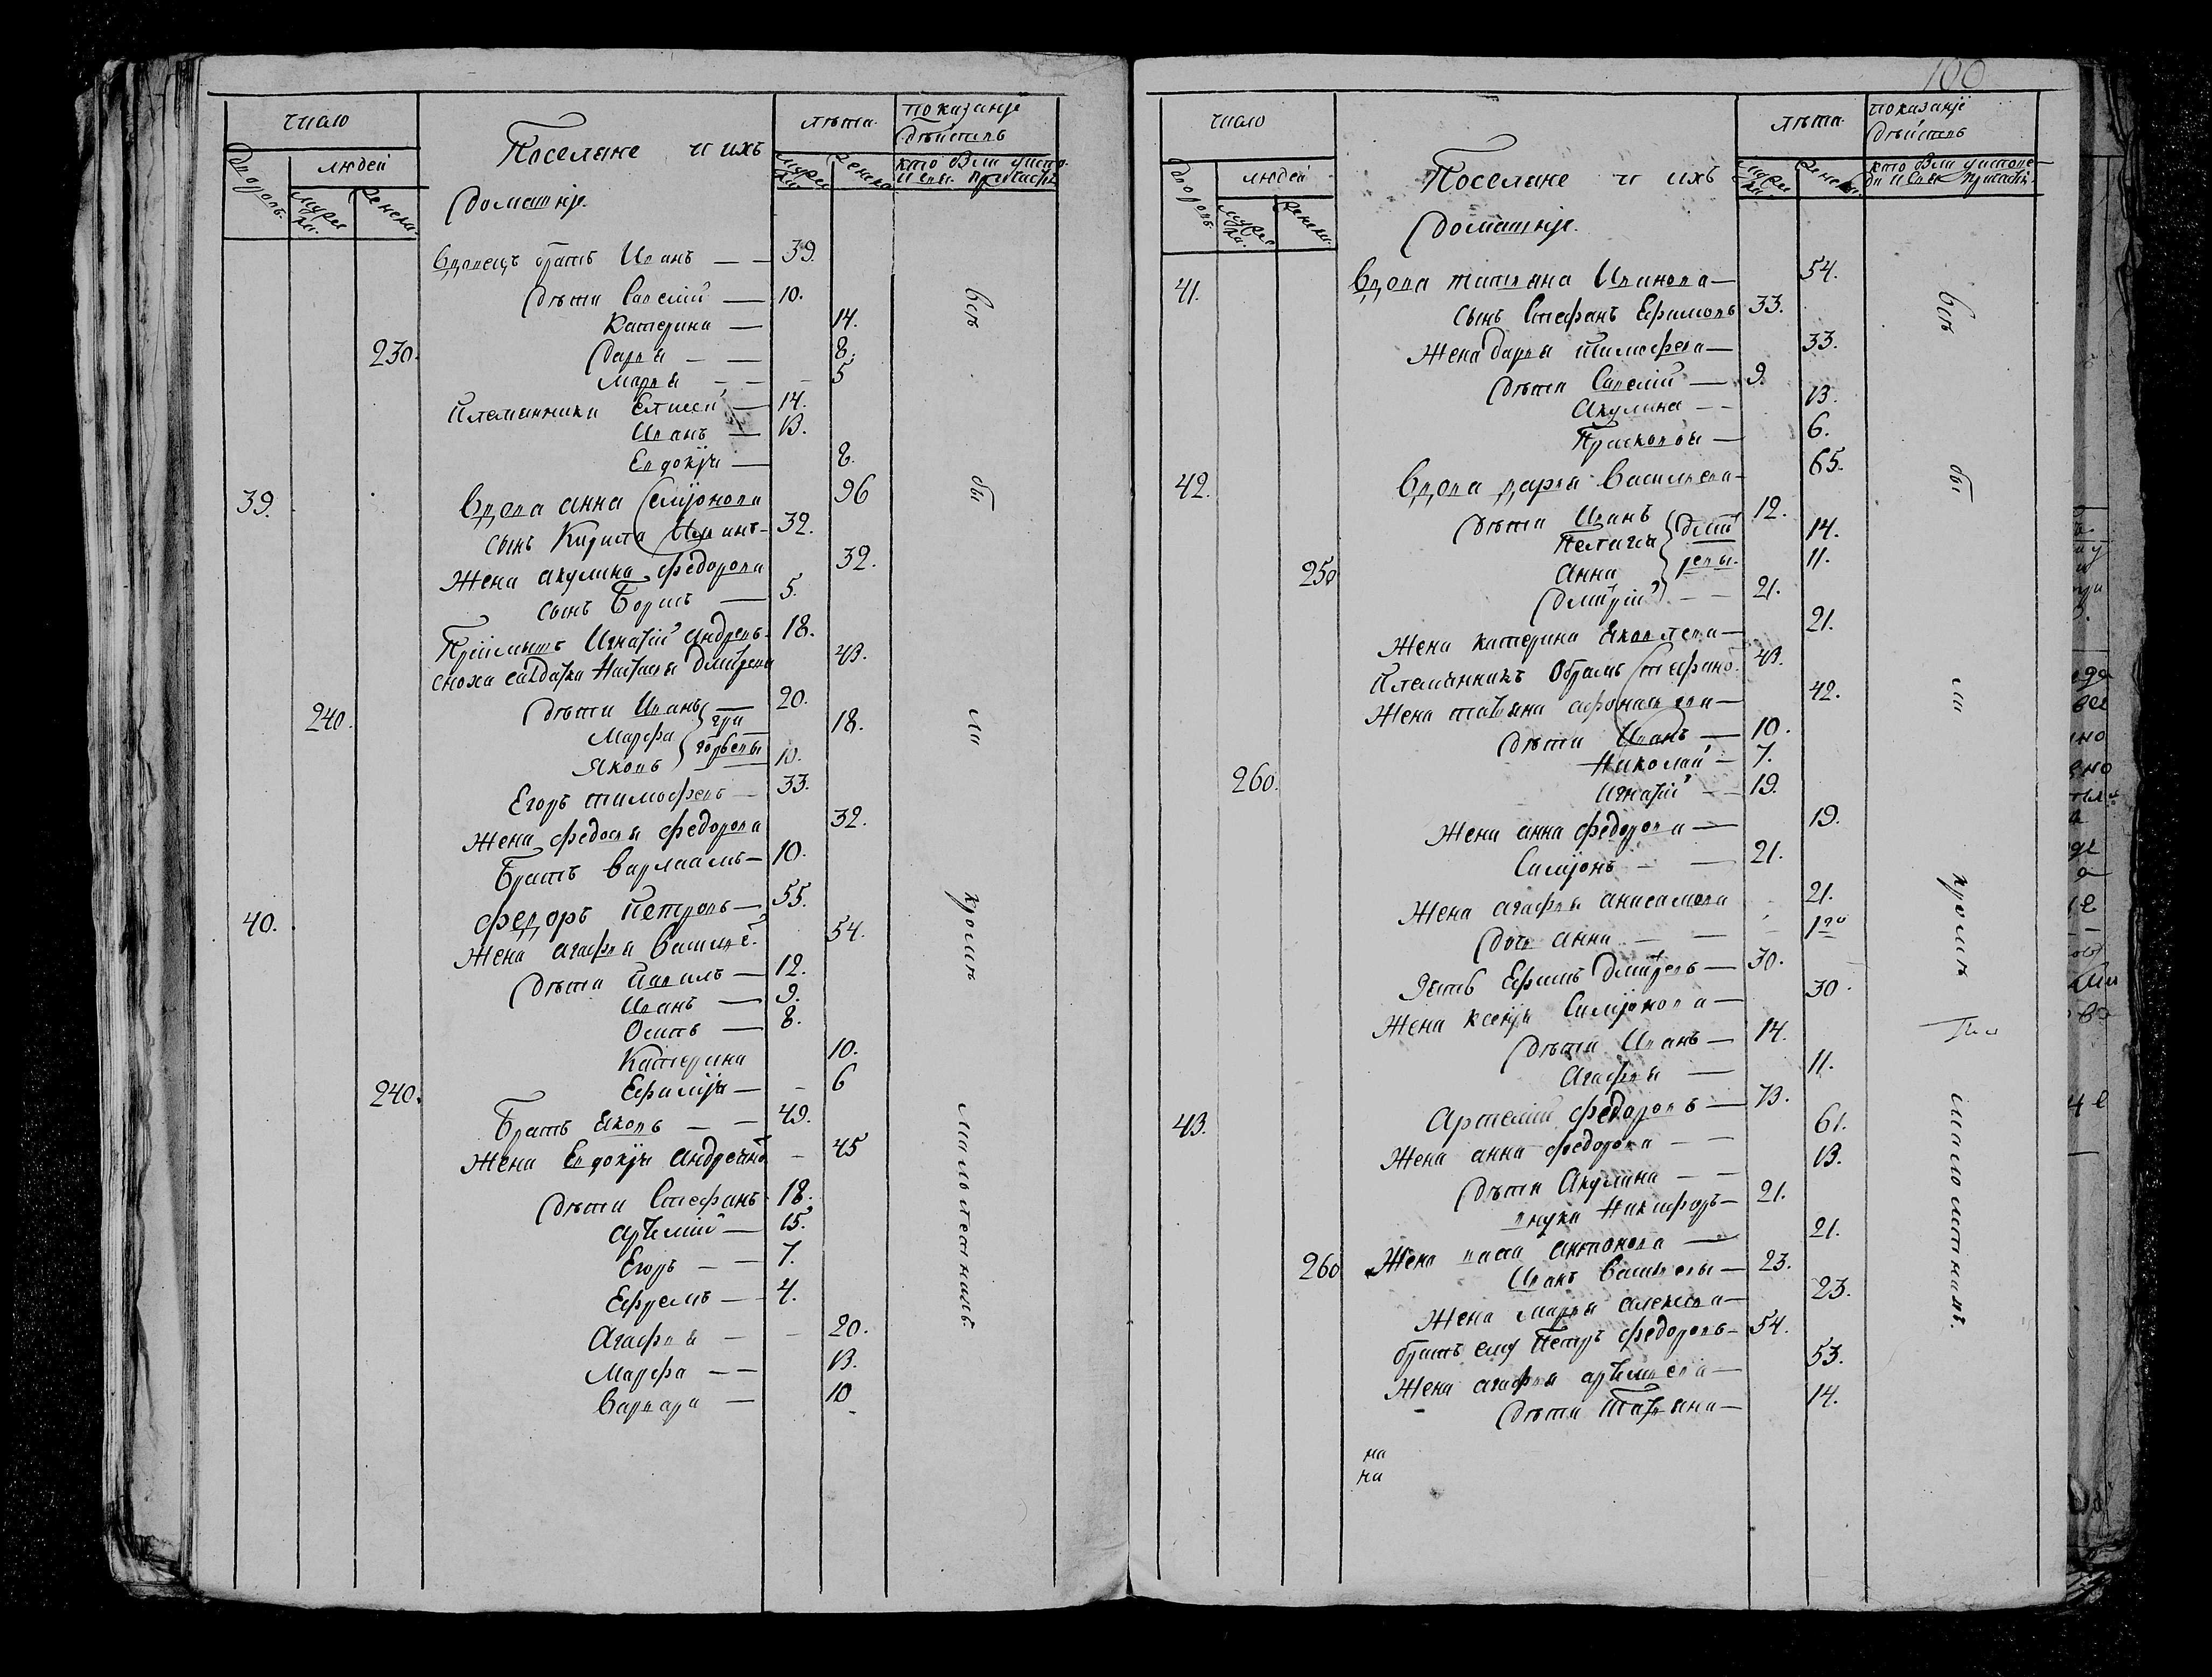 число
лѣта
показанїе
дѣйствъ
Поселяне и ихъ
домашнїе
дворовъ
людей
мужеска
женска
мужеска
женска
кто были у исповѣди и св. причастїя
Вдовецъ братъ Иванъ — 39.
дѣти Савелiй — 10.
Катерина — 14.
230. Дарья — 8.
Марья — 5
Племянники Елисѣй — 14.
Иванъ — 13.
Евдокїя — 8.
39. Вдова Анна Семїонова 96
сынъ Кирила Иванъ — 32.
Жена Акулина Федорова 32.
сынъ Борисъ — 5.
Прїимышъ Игнатiй Андреевъ 18.
сноха салдатка Наталья Дмитрева 43.
240. дѣти Иванъ — 20.
Марфа 18.
Яковъ 10.
Егоръ Тимофеевъ — 33.
Жена Федосья Федорова 32.
Братъ Варлаамъ — 10.
40. Федоръ Петровъ — 55.
Жена Агафья Василье. 54.
дѣти Павилъ — 12.
Иванъ — 9.
Осипъ — 8.
Катерина 10.
240. Ефимїя — 6
Братъ Яковъ — 49.
Жена Евдокїя Андреевна 45
дѣти Стефанъ 18.
Артемiй — 15.
Егоръ — 7.
Ефремъ — 4.
Агафья — 20.
Марфа — 13.
Варвара — 10
всѣ
бы
ли
кромѣ
малолѣтнимъ.
100
число
лѣта
показанїе
дѣйствъ
Поселяне и ихъ
домашнїе.
дворовъ
людей
мужеска
женска
мужеска
женска
кто были у исповѣди и св. причастї
41. Вдова Татьяна Иванова — 54.
сынъ Стефанъ Ефимовъ 33.
Жена Дарья Тимофева — 33.
дѣти Савелiй — 9.
Акулина — 13.
Прасковья — 6.
42. Вдова Дарья Васильева — 65.
дѣти Иванъ 12.
Пелагея 14.
250 Анна 11.
Дмитрiй — 21.
Жена Катерина Яковлева — 21.
Племянникъ Обрамъ Стефано. 43.
Жена Татьяна Афонасьева — 42.
дѣти Иванъ — 10.
Николай — 7.
260. Игнатiй — 19.
Жена Анна Федорова — 19.
Симїонъ — 21.
Жена Агафья Анисимова 21.
Дочь Анна — 1го
Зять Ефимъ Дмитревъ — 30.
Жена Ксенїя Симїонова — 30.
дѣти Иванъ — 14.
Агафья — 11.
43. Артемiй Федоровъ — 73.
Жена Анна Федорова — 61.
дѣти Акулина — 13.
внуки Никифоръ — 21.
260 Жена Васа Антонова — 21.
Иванъ Васильевы — 23.
Жена Марья Алексева — 23.
братъ ему Петръ Федоровъ — 54.
Жена Агафья Артемева — 53.
дѣти Татьяна — 14.
на
на
всѣ
бы
ли
кромѣ
малолѣтнимъ.